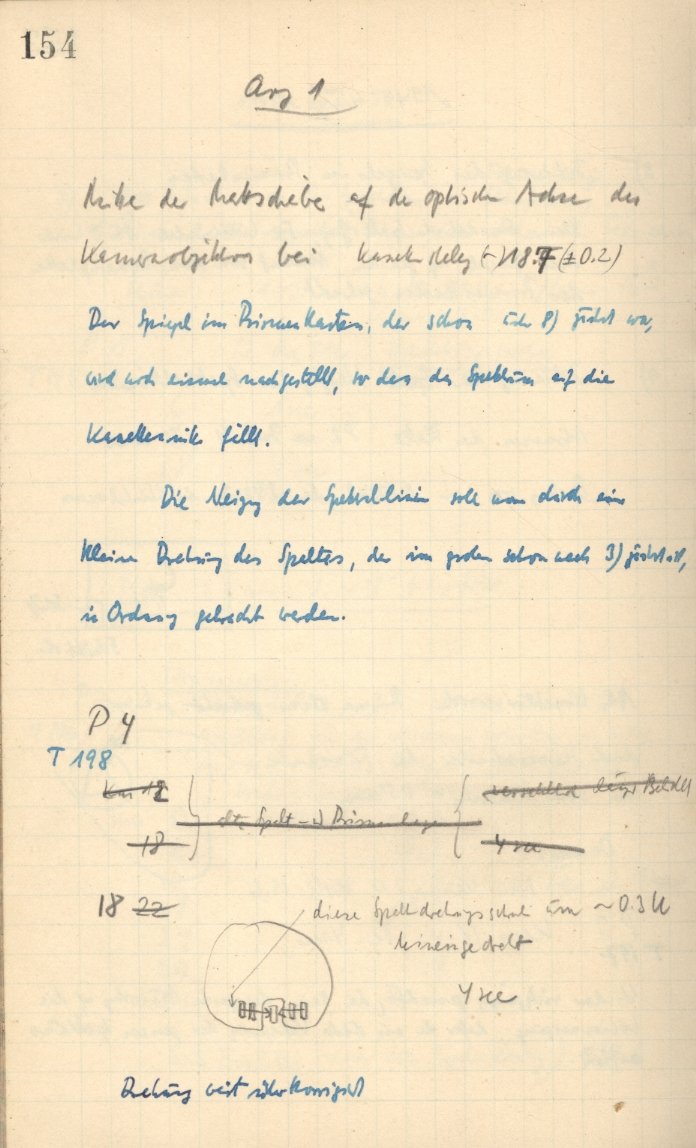 154
Aug 1
Mitte der Mattscheibe auf der optischen Achse des
Kameraobjektivs bei (-) 18.7 (± 0.2)
Der Spiegel im Prismenkasten, der schon nach 8) justiert war,
wird noch einmal nachgestellt, so dass das Spektrum auf die
Kassettenmitte fällt.
Die Neigung der Spektrallinien soll nun durch eine
kleine Drehung des Spaltes, der im groben schon nach 3) justiert ist,
in Ordnung gebracht werden.
P 4
T 198
12
18
alte Spalt- u Prismenlage
4 sec
18 22
diese Spaltdrehungsschraube um ~ 0.3 U
hineingedreht
4 sec
Drehung weit überkorrigiert